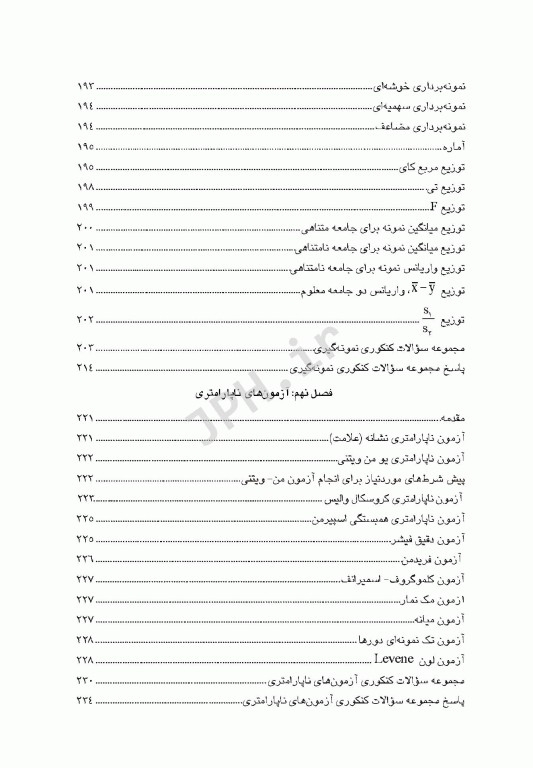 نمونه‌برداری خوشه‌ای ۱۹۳
نمونه‌برداری سهمیه‌ای ۱۹۴
نمونه‌برداری مضاعف ۱۹۴
آماره ۱۹۵
توزیع مربع کای ۱۹۵
توزیع تی ۱۹۸
توزیع F ۱۹۹
توزیع میانگین نمونه برای جامعه متناهی ۲۰۰
توزیع میانگین نمونه برای جامعه نامتناهی ۲۰۱
توزیع واریانس نمونه برای جامعه نامتناهی ۲۰۱
توزیع x̄ − ȳ، واریانس دو جامعه معلوم ۲۰۱
توزیع s۱/s۲ ۲۰۲
مجموعه سؤالات کنکوری نمونه‌گیری ۲۰۳
پاسخ مجموعه سؤالات کنکوری نمونه‌گیری ۲۱۴
فصل نهم: آزمون‌های ناپارامتری
مقدمه ۲۲۱
آزمون ناپارامتری نشانه (علامت) ۲۲۱
آزمون ناپارامتری یو من ویتنی ۲۲۲
پیش شرط‌های موردنیاز برای انجام آزمون من- ویتنی ۲۲۲
آزمون ناپارامتری کروسکال والیس ۲۲۳
آزمون ناپارامتری همبستگی اسپیرمن ۲۲۵
آزمون دقیق فیشر ۲۲۵
آزمون فریدمن ۲۲۶
آزمون کلموگروف- اسمیرانف ۲۲۷
ازمون مک نمار ۲۲۷
آزمون میانه ۲۲۷
آزمون تک نمونه‌ای دورها ۲۲۸
آزمون لون Levene ۲۲۸
مجموعه سؤالات کنکوری آزمون‌های ناپارامتری ۲۳۰
پاسخ مجموعه سؤالات کنکوری آزمون‌های ناپارامتری ۲۳۴
JPH.ir